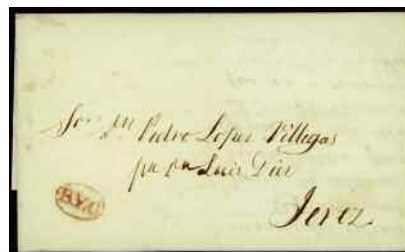 Sor. Dn. Pedro Lopez Villegas
pa Dn Luis Diez
Jerez.